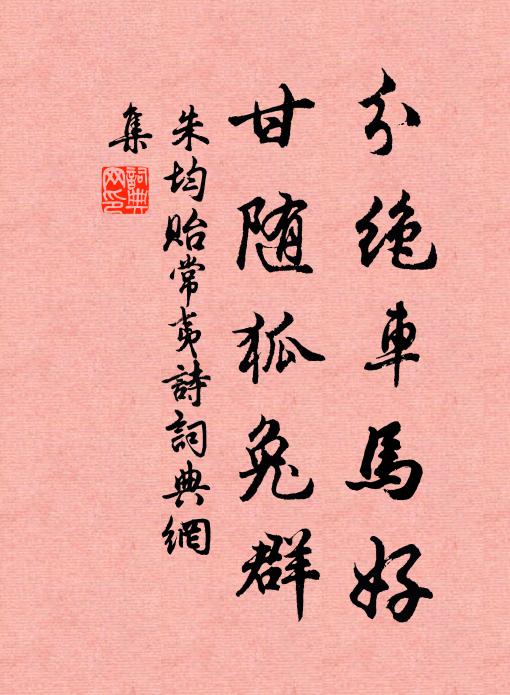 分絶車馬好
甘随狐兔群
朱均貽常夷詩詞典網
集
詞典
网印